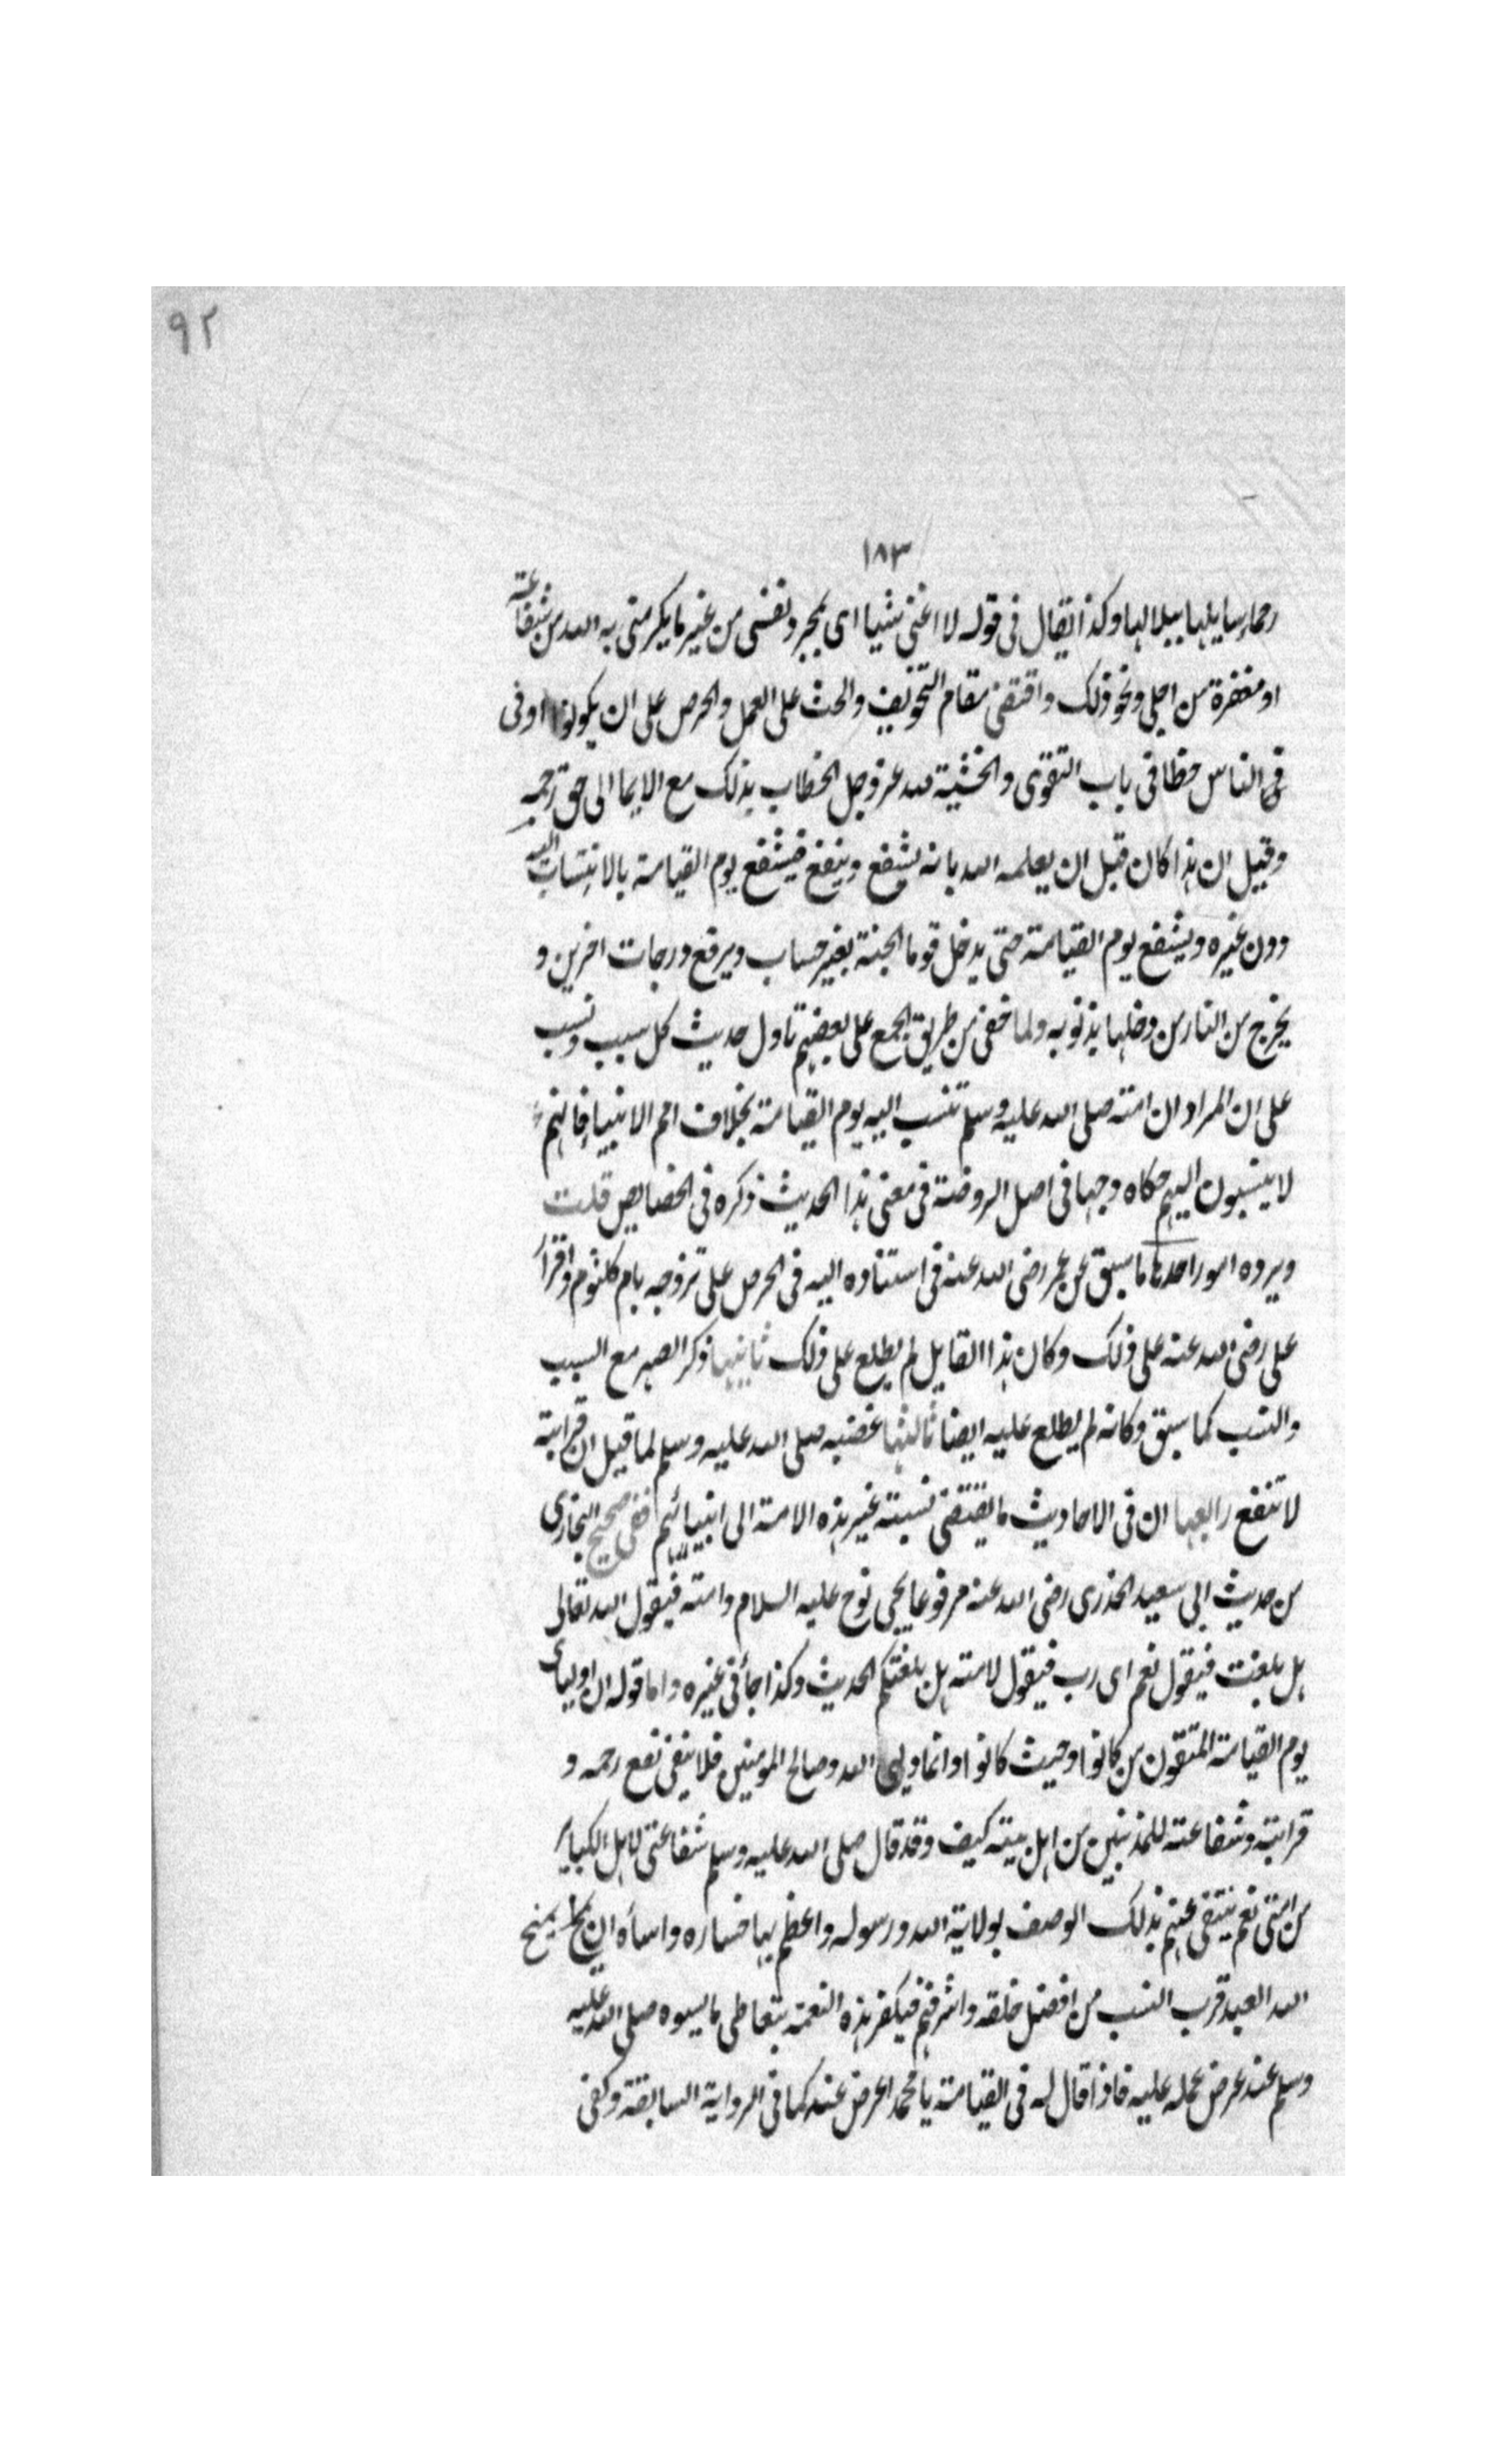 ٩٢
١٨٣
رحما سابلها ببلالها وكذا يقال فى قوله لا اغنى شيا اى بمجرد نفسى من غير ما يكرمنى به الله من شفاعته
او مغفرة من اجلى ونحو ذلك واقتضى مقام التخويف والحث على العمل والحرص على ان يكونوا اوفى
فى الناس حظا فى باب التقوى والخشية لله عز وجل الخطاب بذلك مع الايما الى حق رحمه
وقيل ان هذا كان قبل ان يعلمه الله بانه يشفع وينفع فيشفع يوم القيامة بالانتساب اليه
دون غيره ويشفع يوم القيامة حتى يدخل قوما الجنة بغير حساب ويرفع درجات اخرين و
يخرج من النار من دخلها بذنوبه ولما خفى من طريق الجمع على بعضهم تاول حديث كل سبب ونسب
على ان المراد ان امته صلى الله عليه وسلم تنسب اليه يوم القيامة بخلاف امم الانبياء فانهم
لا ينسبون اليهم حكاه وجها فى اصل الروضة فى معنى هذا الحديث ذكره فى الخصايص قلت
ويرده امور احدها ما سبق عن عمر رضى الله عنه فى استناده اليه فى الحرص على تزوجه بام كلثوم واقرار
على رضى الله عنه على ذلك وكان هذا القايل لم يطلع على ذلك ثانيها ذكر الصهر مع السبب
والنسب كما سبق وكانه لم يطلع عليه ايضا ثالثها غضبه صلى الله عليه وسلم لما قيل ان قرابته
لا تنفع رابعها ان فى الاحاديث ما يقتضى نسبته غير هذه الامة الى انبيائهم ففى صحيح البخارى
من حديث ابى سعيد الخدرى رضى الله عنه مرفوعا يجى نوح عليه السلام وامته فيقول الله تعالى
هل بلغت فيقول نعم اى رب فيقول لامته هل بلغتكم الحديث وكذا جأ فى غيره واما قوله ان اوليائى
يوم القيامة المتقون من كانوا وحيث كانوا وانما وليى الله وصالح المومنين فلا ينفى نفع رحمه و
قرابته وشفاعته للمذنبين من اهل بيته كيف وقد قال صلى الله عليه وسلم شفاعتى لاهل الكباير
من امتى نعم ينتفى عنهم بذلك الوصف بولاية الله ورسوله واعظم بها خساره واسأه ان يمنح
الله العبد قرب النسب من افضل خلقه واشرفهم فيكفر هذه النعمة بتعاطى ما يسوه صلى الله عليه
وسلم عند عرض عمله عليه فاذا قال له فى القيامة يا محمد اعرض عنه كما فى الرواية السابقة وكفى